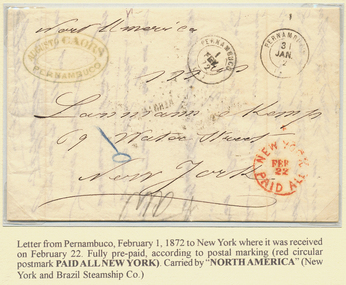 North America
CAORS
PERNAMBUCO
PERNAMBUCO
1
FEV
PERNAMBUCO
31
JAN
Lanman & Kemp
69 Water Street
New York
NEW YORK
FEB
22
PAID ALL
Letter from Pernambuco, February 1, 1872 to New York where it was received
on February 22. Fully pre-paid, according to postal marking (red circular
postmark PAID ALL NEW YORK). Carried by "NORTH AMERICA" (New
York and Brazil Steamship Co.)